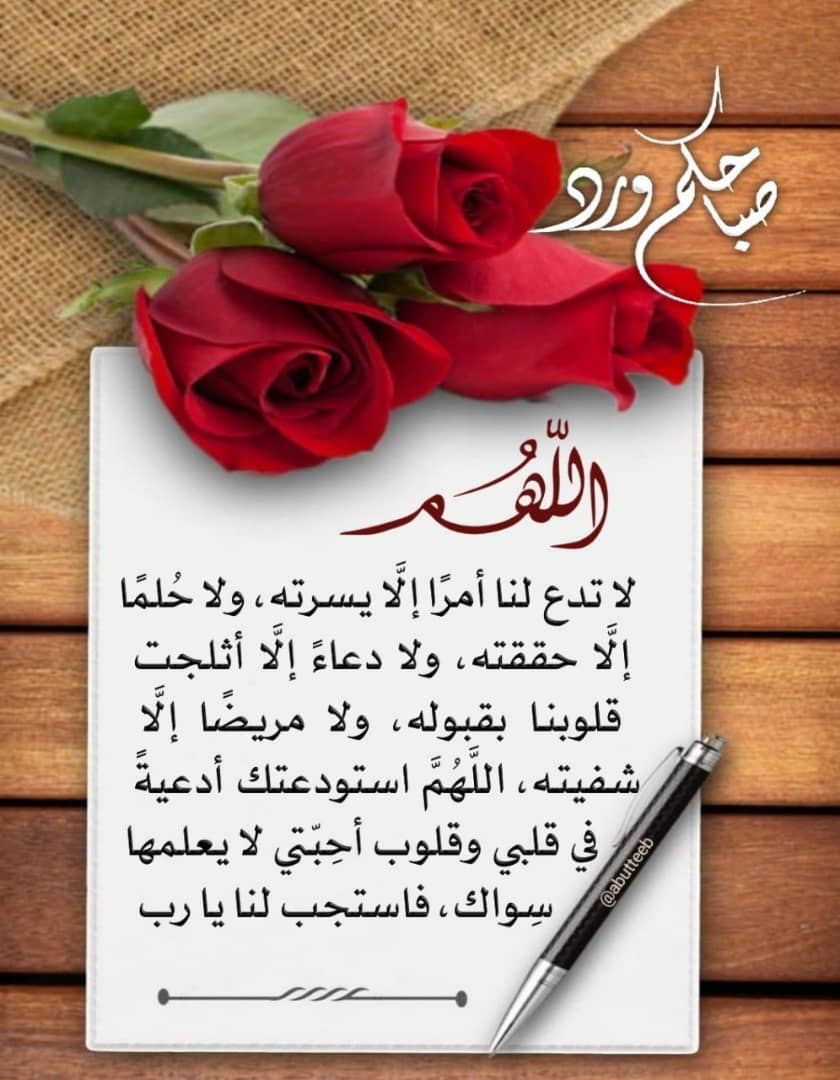 صباحكم ورد
اللهم
لا تدع لنا أمرًا إلَّا يسرته، ولا حُلمًا
إلَّا حققته، ولا دعاءً إلَّا أثلجت
قلوبنا بقبوله، ولا مريضًا إلَّا
شفيته، اللَّهُمَّ استودعتك أدعيةً
في قلبي وقلوب أحِبّتي لا يعلمها
سِواك، فاستجب لنا يا رب
@abutteeb